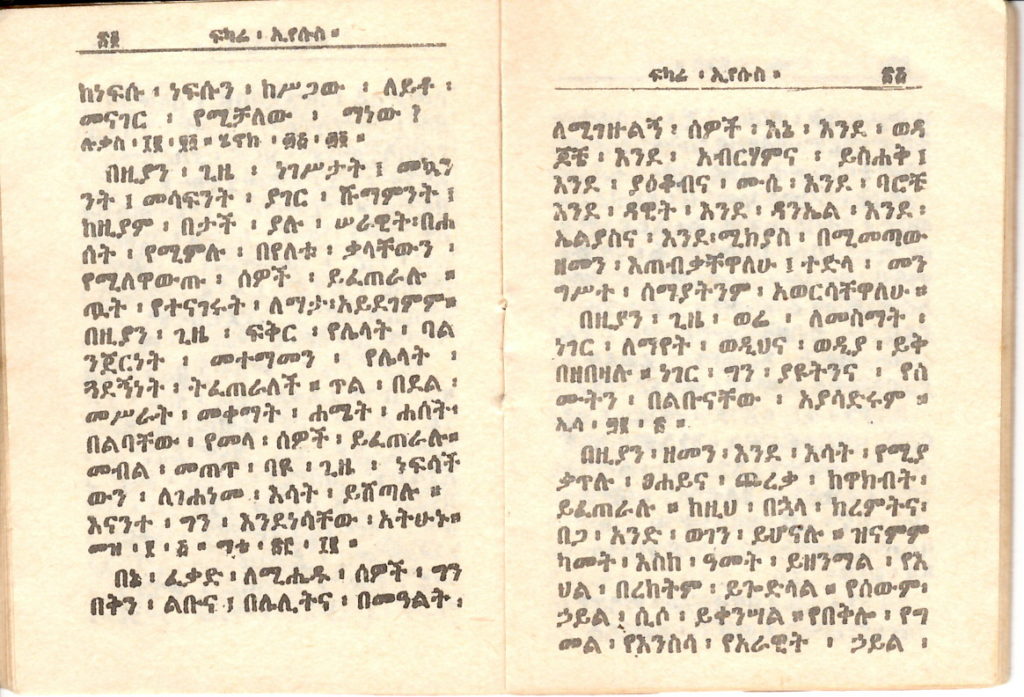 ፳፬ ፍካሬ ፡ ኢየሱስ ።
ከነፍሱ ፡ ነፍሱን ፡ ከሥጋው ፡ ለይቶ ፡
መናገር ፡ የሚቻለው ፡ ማነው ?
ሉቃስ ፡
በዚያን ፡ ጊዜ ፡ ነገሥታት ፤ መኳን
ንት ፤ መሳፍንት ፡ ያገር ፡ ሹማምንት ፤
ከዚያም ፡ በታች ፡ ያሉ ፡ ሠራዊት፡በሐ
ሰት ፡ የሚምሉ ፡ በየለቱ ፡ ቃላቸውን ፡
የሚለዋውጡ ፡ ሰዎች ፡ ይፈጠራሉ ።
ጧት ፡ የተናገሩት ፡ ለማታ፡አይደገምም።
በዚያን ፡ ጊዜ ፡ ፍቅር ፡ የሌላት ፡ ባል
ንጀርነት ፡ መተማመን ፡ የሌላት ፡
ጓደኝነት ፡ ትፈጠራለች ። ጥል ፡ በደል ፡
መሥራት ፡ መቀማት ፡ ሐሜት ፡ ሐሰት፡
በልባቸው ፡ የመላ ፡ ሰዎች ፡ ይፈጠራሉ።
መብል ፡ መጠጥ ፡ ባዩ ፡ ጊዜ ፡ ነፍሳች
ውን ፡ ለገሐነመ ፡ እሳት ፡ ይሸጣሉ ።
እናንተ ፡ ግን ፡ እንደነሳቸው ፡ አትሁኑ።
መዝ ፡ ፩ ፡ ፩ ። ማቴ ፡
በኔ ፡ ፈቃድ ፡ ለሚሔዱ ፡ ሰዎች ፡ ግን
በቅን ፡ ልቡና ፤ በሌሊትና ፡ በመዓልት ፡
ፍካሬ ፡ ኢየሱስ ። ፳፭
ለሚገዙልኝ ፡ ሰዎች ፡ እኔ ፡ እንደ ፡ ወዳ
ጆቼ ፡ እንደ ፡ አብርሃምና ፡ ይስሐቅ ፤
እንደ ፡ ያዕቆብና ፡ ሙሴ ፡ እንደ ፡ ባሮቼ
እንደ ፡ ዳዊት ፡ እንደ ፡ ዳንኤል ፡ እንደ ፡
ኤልያስና ፡ እንደ፡ሚክያስ ፡ በሚመጣው
ዘመን ፡ እጠብቃቸዋለሁ ፤ ተድላ ፡ መን
ግሥተ ፡ ሰማያትንም ፡ አወርሳቸዋለሁ።
በዚያን ፡ ጊዜ ፡ ወሬ ፡ ለመስማት ፡
ነገር ፡ ለማየት ፡ ወዲህና ፡ ወዲያ ፡ ይቅ
በዘበዛሉ ። ነገር ፡ ግን ፡ ያዩትንና ፡ የሰ
ሙትን ፡ በልቡናቸው ፡ አያሳድሩም ።
ኢሳ ፡
በዚያን ፡ ዘመን ፡ እንደ ፡ እሳት ፡ የሚያ
ቃጥሉ ፡ ፀሐይና ፡ ጨረቃ ፡ ከዋክብት፡
ይፈጠራሉ ። ከዚህ ፡ በኋላ ፡ ክረምትና፡
በጋ ፡ አንድ ፡ ወገን ፡ ይሆናሉ ። ዝናምም
ካመት ፡ እስከ ፡ ዓመት ፡ ይዘንማል ፡ የእ
ህል ፡ በረከትም ፡ ይጐድላል ። የሰውም፡
ኃይል ፡ ሲሶ ፡ ይቀንሣል ። የበቅሎ ፡ የግ
መል ፡ የእንስሳ ፡ የአራዊት ፡ ኃይል ፡